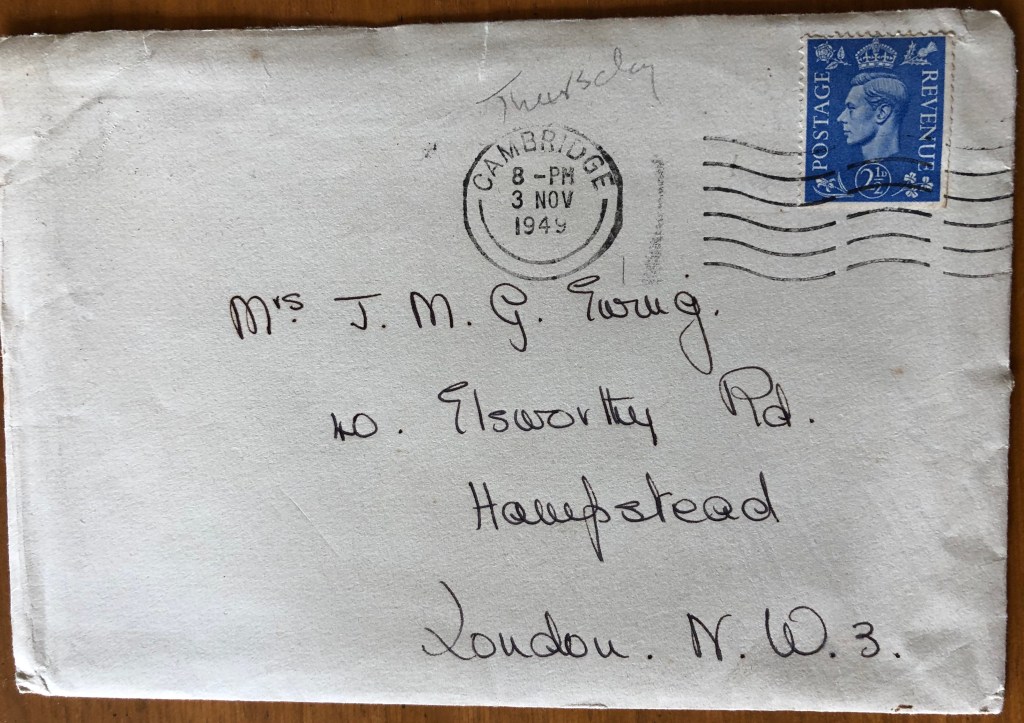 Thursday
POSTAGE REVENUE
2½D
CAMBRIDGE
8 -PM
3 NOV
1949
Mrs J. M. G. Ewing.
40. Elsworthy Rd.
Hampstead
London. N. W. 3.